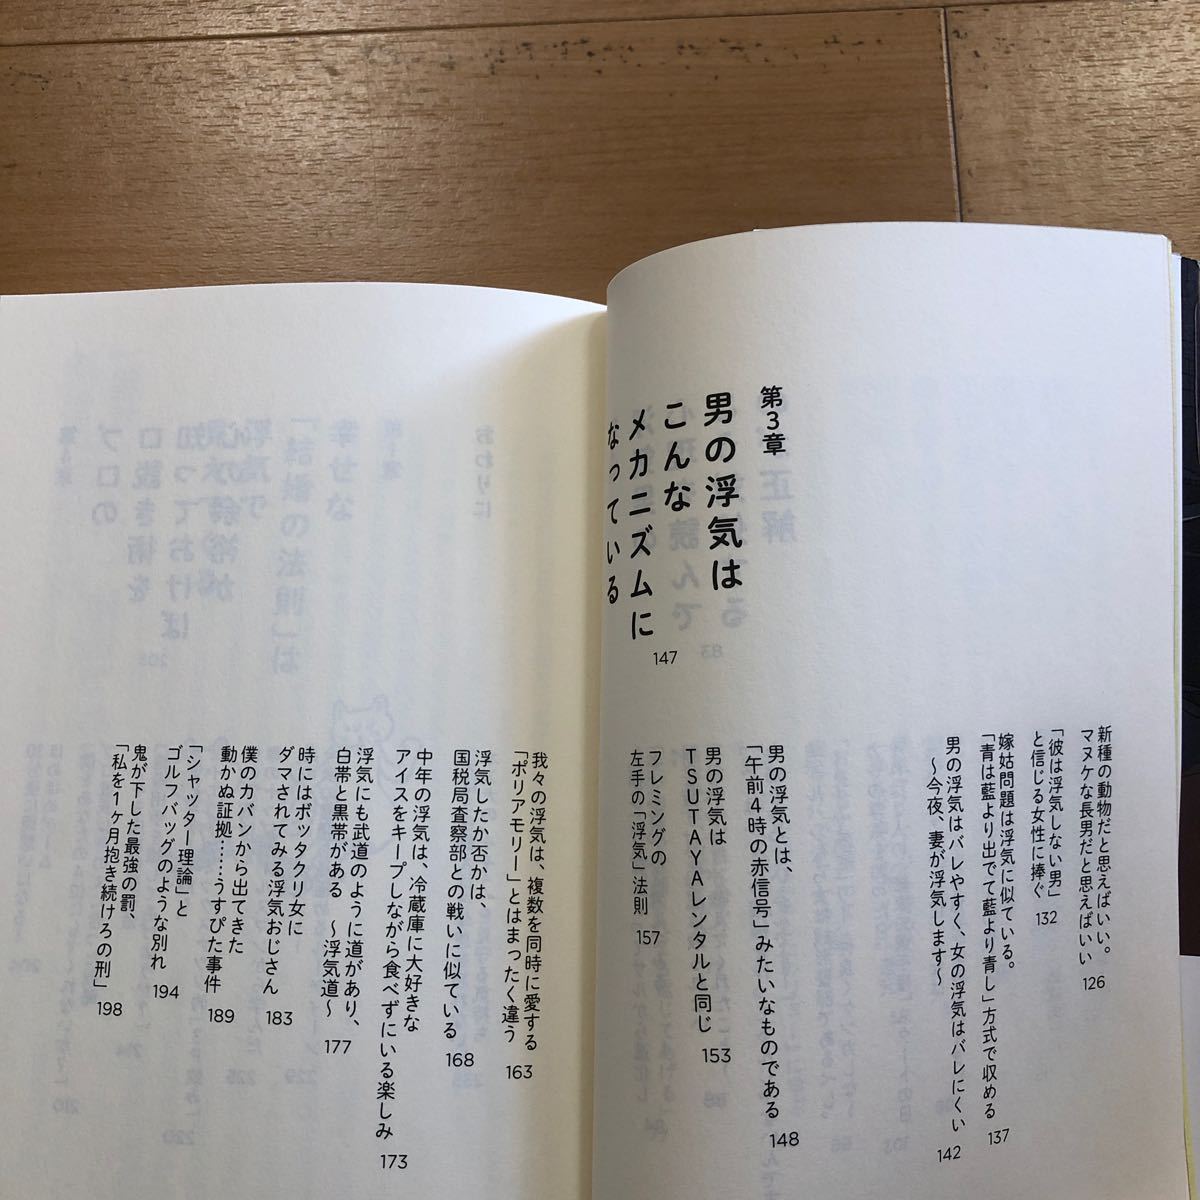 新種の動物だと思えばいい。
マヌケな長男だと思えばいい
126
「彼は浮気しない男」
と信じる女性に捧ぐ
132
嫁姑問題は浮気に似ている。
「青は藍より出でて藍より青し」方式で収める
137
男の浮気はバレやすく、女の浮気はバレにくい
〜今夜、妻が浮気します〜
142
第3章
男の浮気は
こんな
メカニズムに
なっている
147
男の浮気とは、
「午前4時の赤信号」みたいなものである
148
男の浮気は
TSUTAYAレンタルと同じ
153
フレミングの
左手の「浮気」法則
157
我々の浮気は、複数を同時に愛する
「ポリアモリー」とはまったく違う
163
浮気したか否かは、
国税局査察部との戦いに似ている
168
中年の浮気は、冷蔵庫に大好きな
アイスをキープしながら食べずにいる楽しみ
173
浮気にも武道のように道があり、
白帯と黒帯がある 〜浮気道〜
177
時にはボッタクリ女に
ダマされてみる浮気おじさん
183
僕のカバンから出てきた
動かぬ証拠……うすぴた事件
189
「シャッター理論」と
ゴルフバッグのような別れ
194
鬼が下した最強の罰、
「私を1ヶ月抱き続けろの刑」
198